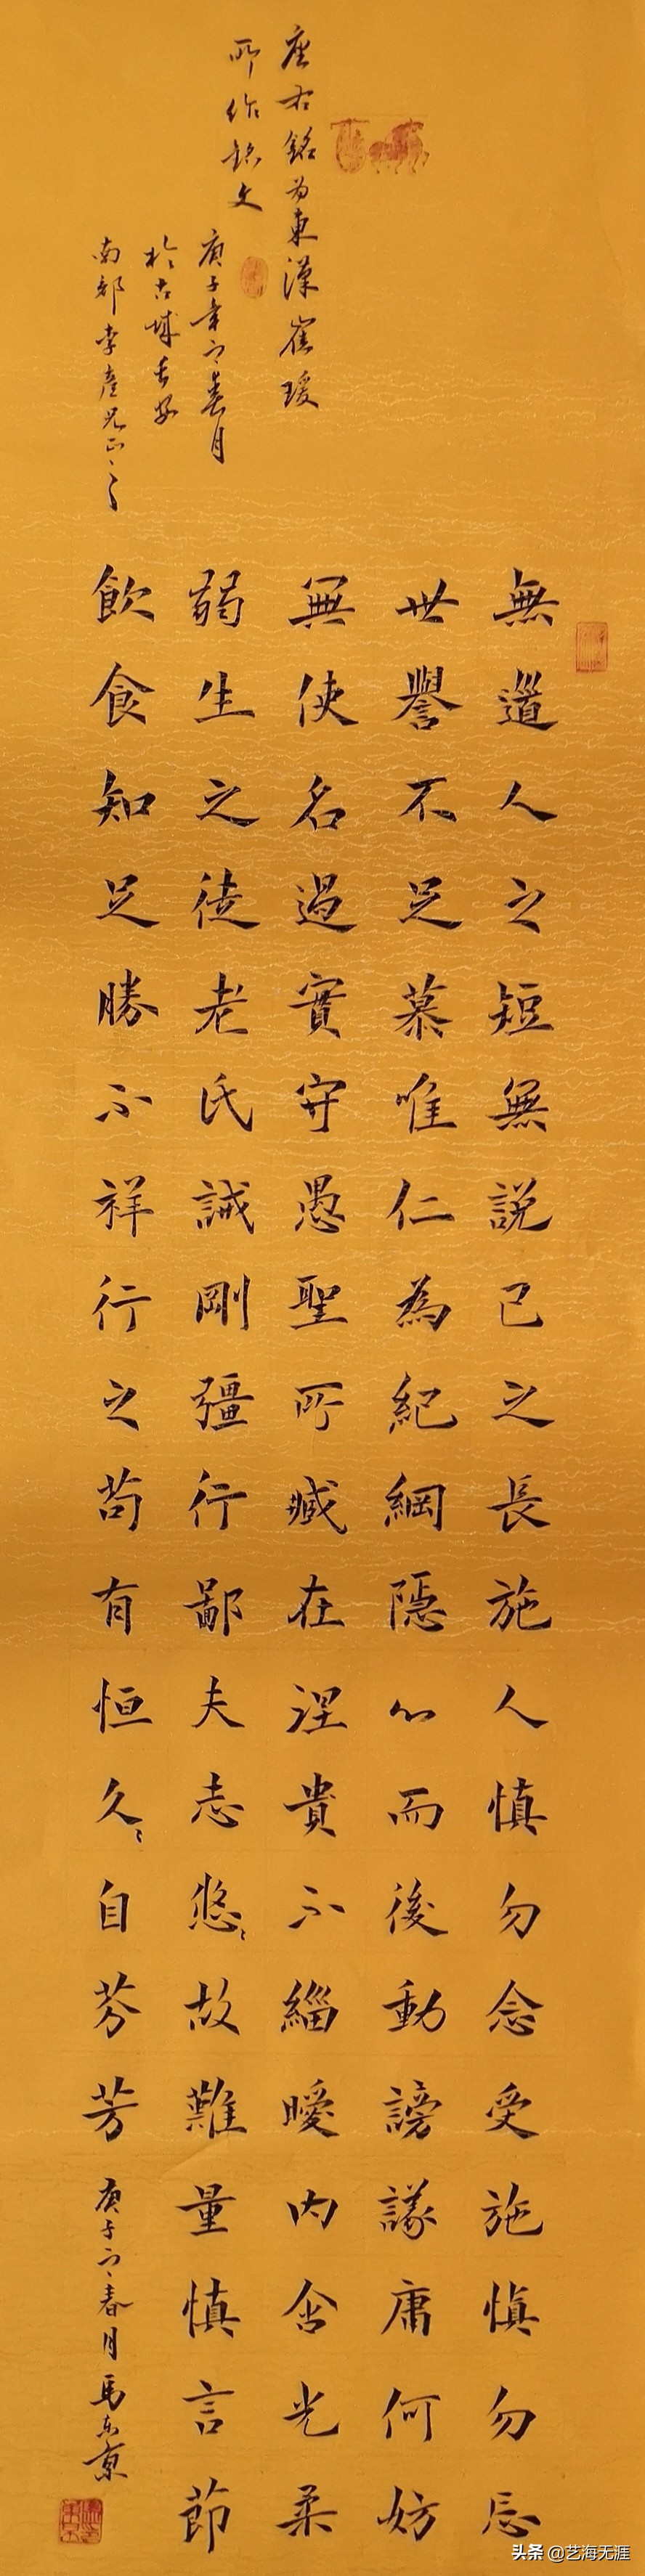 座右銘為東漢崔瑗
所作銘文
庚子年之春月
於古城長
南部李彥兄正之
無道人之短無說己之長施人慎勿念受施慎勿忘
世譽不足慕唯仁為紀綱隱心而後動謗議庸何妨
無使名過實守愚聖所臧在涅貴不緇曖內含光柔
弱生之徒老氏誡剛彊行鄙夫志悠〻故難量慎言節
飲食知足勝不祥行之苟有恒久〻自芬芳 庚子之春月馬东
头条 @艺海无涯